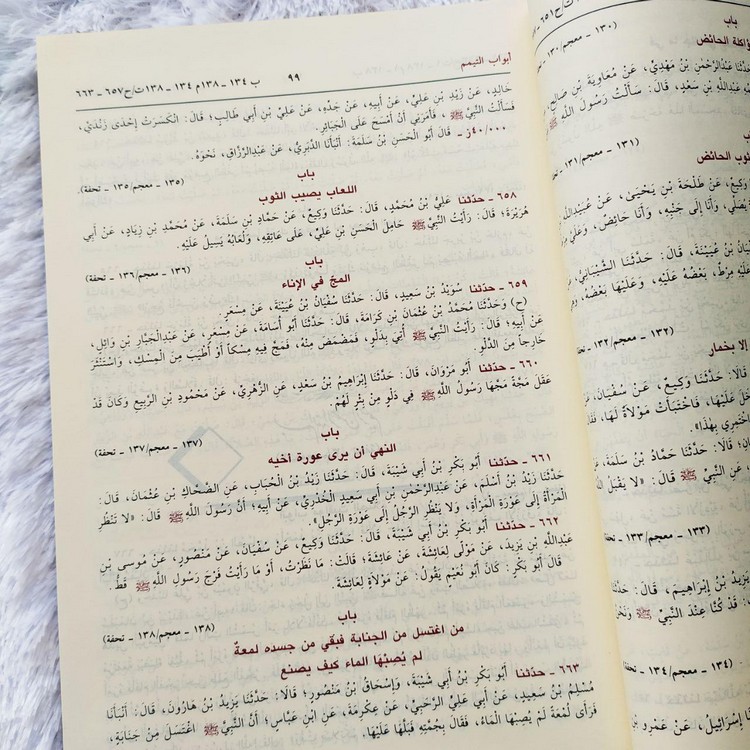 أبواب التيمم
٩٩
ب ١٣٤ - ١٣٨م ١٣٤ - ١٣٨ت/ح٦٥٧ - ٦٦٣
خَالِدٍ، عَنْ زَيْدِ بْنِ عَلِيٍّ، عَنْ أَبِيهِ، عَنْ جَدِّهِ، عَنْ عَلِيِّ بْنِ أَبِي طَالِبٍ؛ قَالَ: انْكَسَرَتْ إِحْدَى زَنْدَيَّ،
فَسَأَلْتُ النَّبِيَّ ﷺ، فَأَمَرَنِي أَنْ أَمْسَحَ عَلَى الْجَبَائِرِ.
٤٠/٠٠٠ز - قَالَ أَبُو الْحَسَنِ بْنُ سَلَمَةَ: أَنْبَأَنَا الدَّبَرِيُّ، عَنْ عَبْدِالرَّزَّاقِ، نَحْوَهُ.
باب
(١٣٥ - معجم/١٣٥ - تحفة)
اللعاب يصيب الثوب
٦٥٨ - حدّثنا عَلِيُّ بْنُ مُحَمَّدٍ، قَالَ: حَدَّثَنَا وَكِيعٌ، عَنْ حَمَّادِ بْنِ سَلَمَةَ، عَنْ مُحَمَّدِ بْنِ زِيَادٍ، عَنْ أَبِي
هُرَيْرَةَ؛ قَالَ: رَأَيْتُ النَّبِيَّ ﷺ حَامِلَ الْحَسَنِ بْنِ عَلِيٍّ، عَلَى عَاتِقِهِ، وَلُعَابُهُ يَسِيلُ عَلَيْهِ.
باب
(١٣٦ - معجم/١٣٦ - تحفة)
المجّ في الإناء
٦٥٩ - حدّثنا سُوَيْدُ بْنُ سَعِيدٍ، قَالَ: حَدَّثَنَا سُفْيَانُ بْنُ عُيَيْنَةَ، عَنْ مِسْعَرٍ.
(ح) وَحَدَّثَنَا مُحَمَّدُ بْنُ عُثْمَانَ بْنِ كَرَامَةَ، قَالَ: حَدَّثَنَا أَبُو أُسَامَةَ، عَنْ مِسْعَرٍ، عَنْ عَبْدِالْجَبَّارِ بْنِ وَائِلٍ،
عَنْ أَبِيهِ؛ قَالَ: رَأَيْتُ النَّبِيَّ ﷺ أُتِيَ بِدَلْوٍ، فَمَضْمَضَ مِنْهُ، فَمَجَّ فِيهِ مِسْكاً أَوْ أَطْيَبَ مِنَ الْمِسْكِ، وَاسْتَنْثَرَ
خَارِجاً مِنَ الدَّلْوِ.
٦٦٠ - حدّثنا أَبُو مَرْوَانَ، قَالَ: حَدَّثَنَا إِبْرَاهِيمُ بْنُ سَعْدٍ، عَنِ الزُّهْرِيِّ، عَنْ مَحْمُودِ بْنِ الرَّبِيعِ وَكَانَ قَدْ
عَقَلَ مَجَّةً مَجَّهَا رَسُولُ اللَّهِ ﷺ فِي دَلْوٍ مِنْ بِئْرٍ لَهُمْ.
باب
(١٣٧ - معجم/١٣٧ - تحفة)
النهي أن يرى عورة أخيه
٦٦١ - حدّثنا أَبُو بَكْرِ بْنُ أَبِي شَيْبَةَ، قَالَ: حَدَّثَنَا زَيْدُ بْنُ الْحُبَابِ، عَنِ الضَّحَّاكِ بْنِ عُثْمَانَ، قَالَ:
حَدَّثَنَا زَيْدُ بْنُ أَسْلَمَ، عَنْ عَبْدِالرَّحْمٰنِ بْنِ أَبِي سَعِيدٍ الْخُدْرِيِّ، عَنْ أَبِيهِ؛ أَنَّ رَسُولَ اللَّهِ ﷺ قَالَ: «لَا تَنْظُرِ
الْمَرْأَةُ إِلَى عَوْرَةِ الْمَرْأَةِ، وَلَا يَنْظُرِ الرَّجُلُ إِلَى عَوْرَةِ الرَّجُلِ».
٦٦٢ - حدّثنا أَبُو بَكْرِ بْنُ أَبِي شَيْبَةَ، قَالَ: حَدَّثَنَا وَكِيعٌ، عَنْ سُفْيَانَ، عَنْ مَنْصُورٍ، عَنْ مُوسَى بْنِ
عَبْدِاللَّهِ بْنِ يَزِيدَ، عَنْ مَوْلًى لِعَائِشَةَ، عَنْ عَائِشَةَ؛ قَالَتْ: مَا نَظَرْتُ، أَوْ مَا رَأَيْتُ فَرْجَ رَسُولِ اللَّهِ ﷺ قَطُّ.
قَالَ أَبُو بَكْرٍ: كَانَ أَبُو نُعَيْمٍ يَقُولُ: عَنْ مَوْلَاةٍ لِعَائِشَةَ.
باب
(١٣٨ - معجم/١٣٨ - تحفة)
من اغتسل من الجنابة فبقي من جسده لمعةٌ
لم يُصِبْهَا الماء كيف يصنع
٦٦٣ - حدّثنا أَبُو بَكْرِ بْنُ أَبِي شَيْبَةَ، وَإِسْحَاقُ بْنُ مَنْصُورٍ؛ قَالَا: حَدَّثَنَا يَزِيدُ بْنُ هَارُونَ، قَالَ: أَنْبَأَنَا
مُسْلِمُ بْنُ سَعِيدٍ، عَنْ أَبِي عَلِيٍّ الرَّحَبِيِّ، عَنْ عِكْرِمَةَ، عَنِ ابْنِ عَبَّاسٍ؛ أَنَّ النَّبِيَّ ﷺ اغْتَسَلَ مِنْ جَنَابَةٍ،
فَرَأَى لُمْعَةً لَمْ يُصِبْهَا الْمَاءُ، فَقَالَ بِجُمَّتِهِ فَبَلَّهَا عَلَيْهَا.
باب
(١٣٠ - معجم/١٣٠
حَدَّثَنَا عَبْدُالرَّحْمٰنِ بْنُ مَهْدِيٍّ، عَنْ مُعَاوِيَةَ بْنِ صَالِحٍ
عَبْدِاللَّهِ بْنِ سَعْدٍ، قَالَ: سَأَلْتُ رَسُولَ اللَّهِ
(١٣١ - معجم/١٣١
وَكِيعٌ، عَنْ طَلْحَةَ بْنِ يَحْيَى، عَنْ
يُصَلِّي، وَأَنَا إِلَى جَنْبِهِ، وَأَنَا حَائِضٌ،
بْنُ عُيَيْنَةَ، قَالَ: حَدَّثَنَا الشَّيْبَانِيُّ
مِرْطٌ، بَعْضُهُ عَلَيْهِ، وَعَلَيْهَا بَعْضُهُ
(١٣٢ - معجم/١٣٢
إلا بخمار
قَالَا: حَدَّثَنَا وَكِيعٌ، عَنْ سُفْيَانَ
عَلَيْهَا، فَاخْتَبَأَتْ مَوْلَاةٌ لَهَا،
اخْتَمِرِي بِهٰذَا».
قَالَا: حَدَّثَنَا حَمَّادُ بْنُ سَلَمَةَ
عَنِ النَّبِيِّ ﷺ قَالَ: «لَا يَقْبَلُ
(١٣٣ - معجم/١٣٣
يَزِيدُ بْنُ إِبْرَاهِيمَ، قَالَ
قَدْ كُنَّا عِنْدَ النَّبِيِّ ﷺ
(١٣٤ - معجم/١٣٤
إِسْرَائِيلُ، عَنْ عَمْرِو